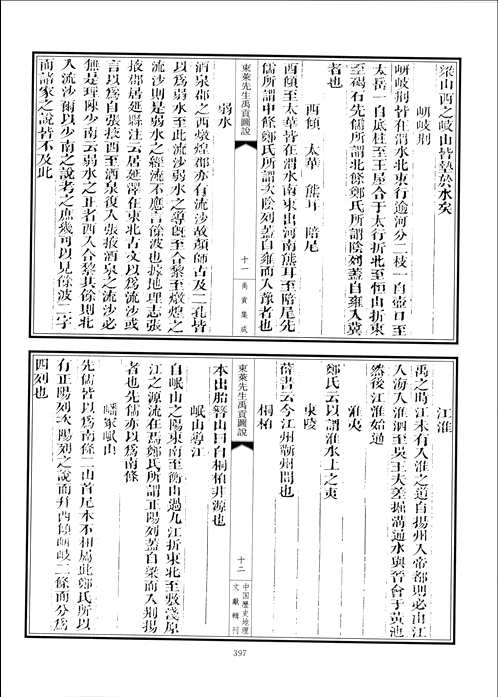 梁山西之岐山皆墊於水矣
岍岐荆
岍岐荆皆在渭水北東行逾河分二枝一自壺口至
太岳一自底柱至王屋合于太行折北至恒山折東
至碣石先儒所謂北條鄭氏所謂陰列蓋自雍入冀
者也
西傾 太華 熊耳 陪尾
西傾至太華皆在渭水南東出河南熊耳至陪尾先
儒所謂中條鄭氏所謂次陰列蓋自雍而入豫者也
東萊先生禹貢圖說
十一
禹貢集成
弱水
酒泉郡之西燉煌郡亦有流沙故顏師古及二孔皆
以為弱水至此流沙弱水之導既至合黎至燉煌之
流沙則是弱水之經流不應言餘波也據地理志張
掖郡居延縣注云居延澤在東北古文以為流沙或
言以為自張掖西至酒泉復入張掖酒泉之流沙必
無是理陳少南云弱水之正者西入合黎其餘則北
入流沙爾以少南之說考之庶幾可以見餘波二字
而諸家之說皆不及此
江淮
禹之時江未有入淮之道自揚州入帝都則必由江
入海入淮泗至吳王夫差掘溝通水與晉會于黃池
然後江淮始通
淮夷
鄭氏云以謂淮水上之夷
東陵
薛書云今江州蘄州間也
桐柏
東萊先生禹貢圖說
十二
中国歷史地理
文獻輯刊
本出胎簪山曰自桐柏非源也
岷山導江
自岷山之陽東南至衡山過九江折東北至敷淺原
江之源流在焉鄭氏所謂正陽列蓋自梁而入荆揚
者也先儒亦以爲南條
嶓冢岷山
先儒皆以為南條二山首尾本不相屬此鄭氏所以
有正陽列次陽列之說而幷西傾岍岐二條而分爲
四列也
397